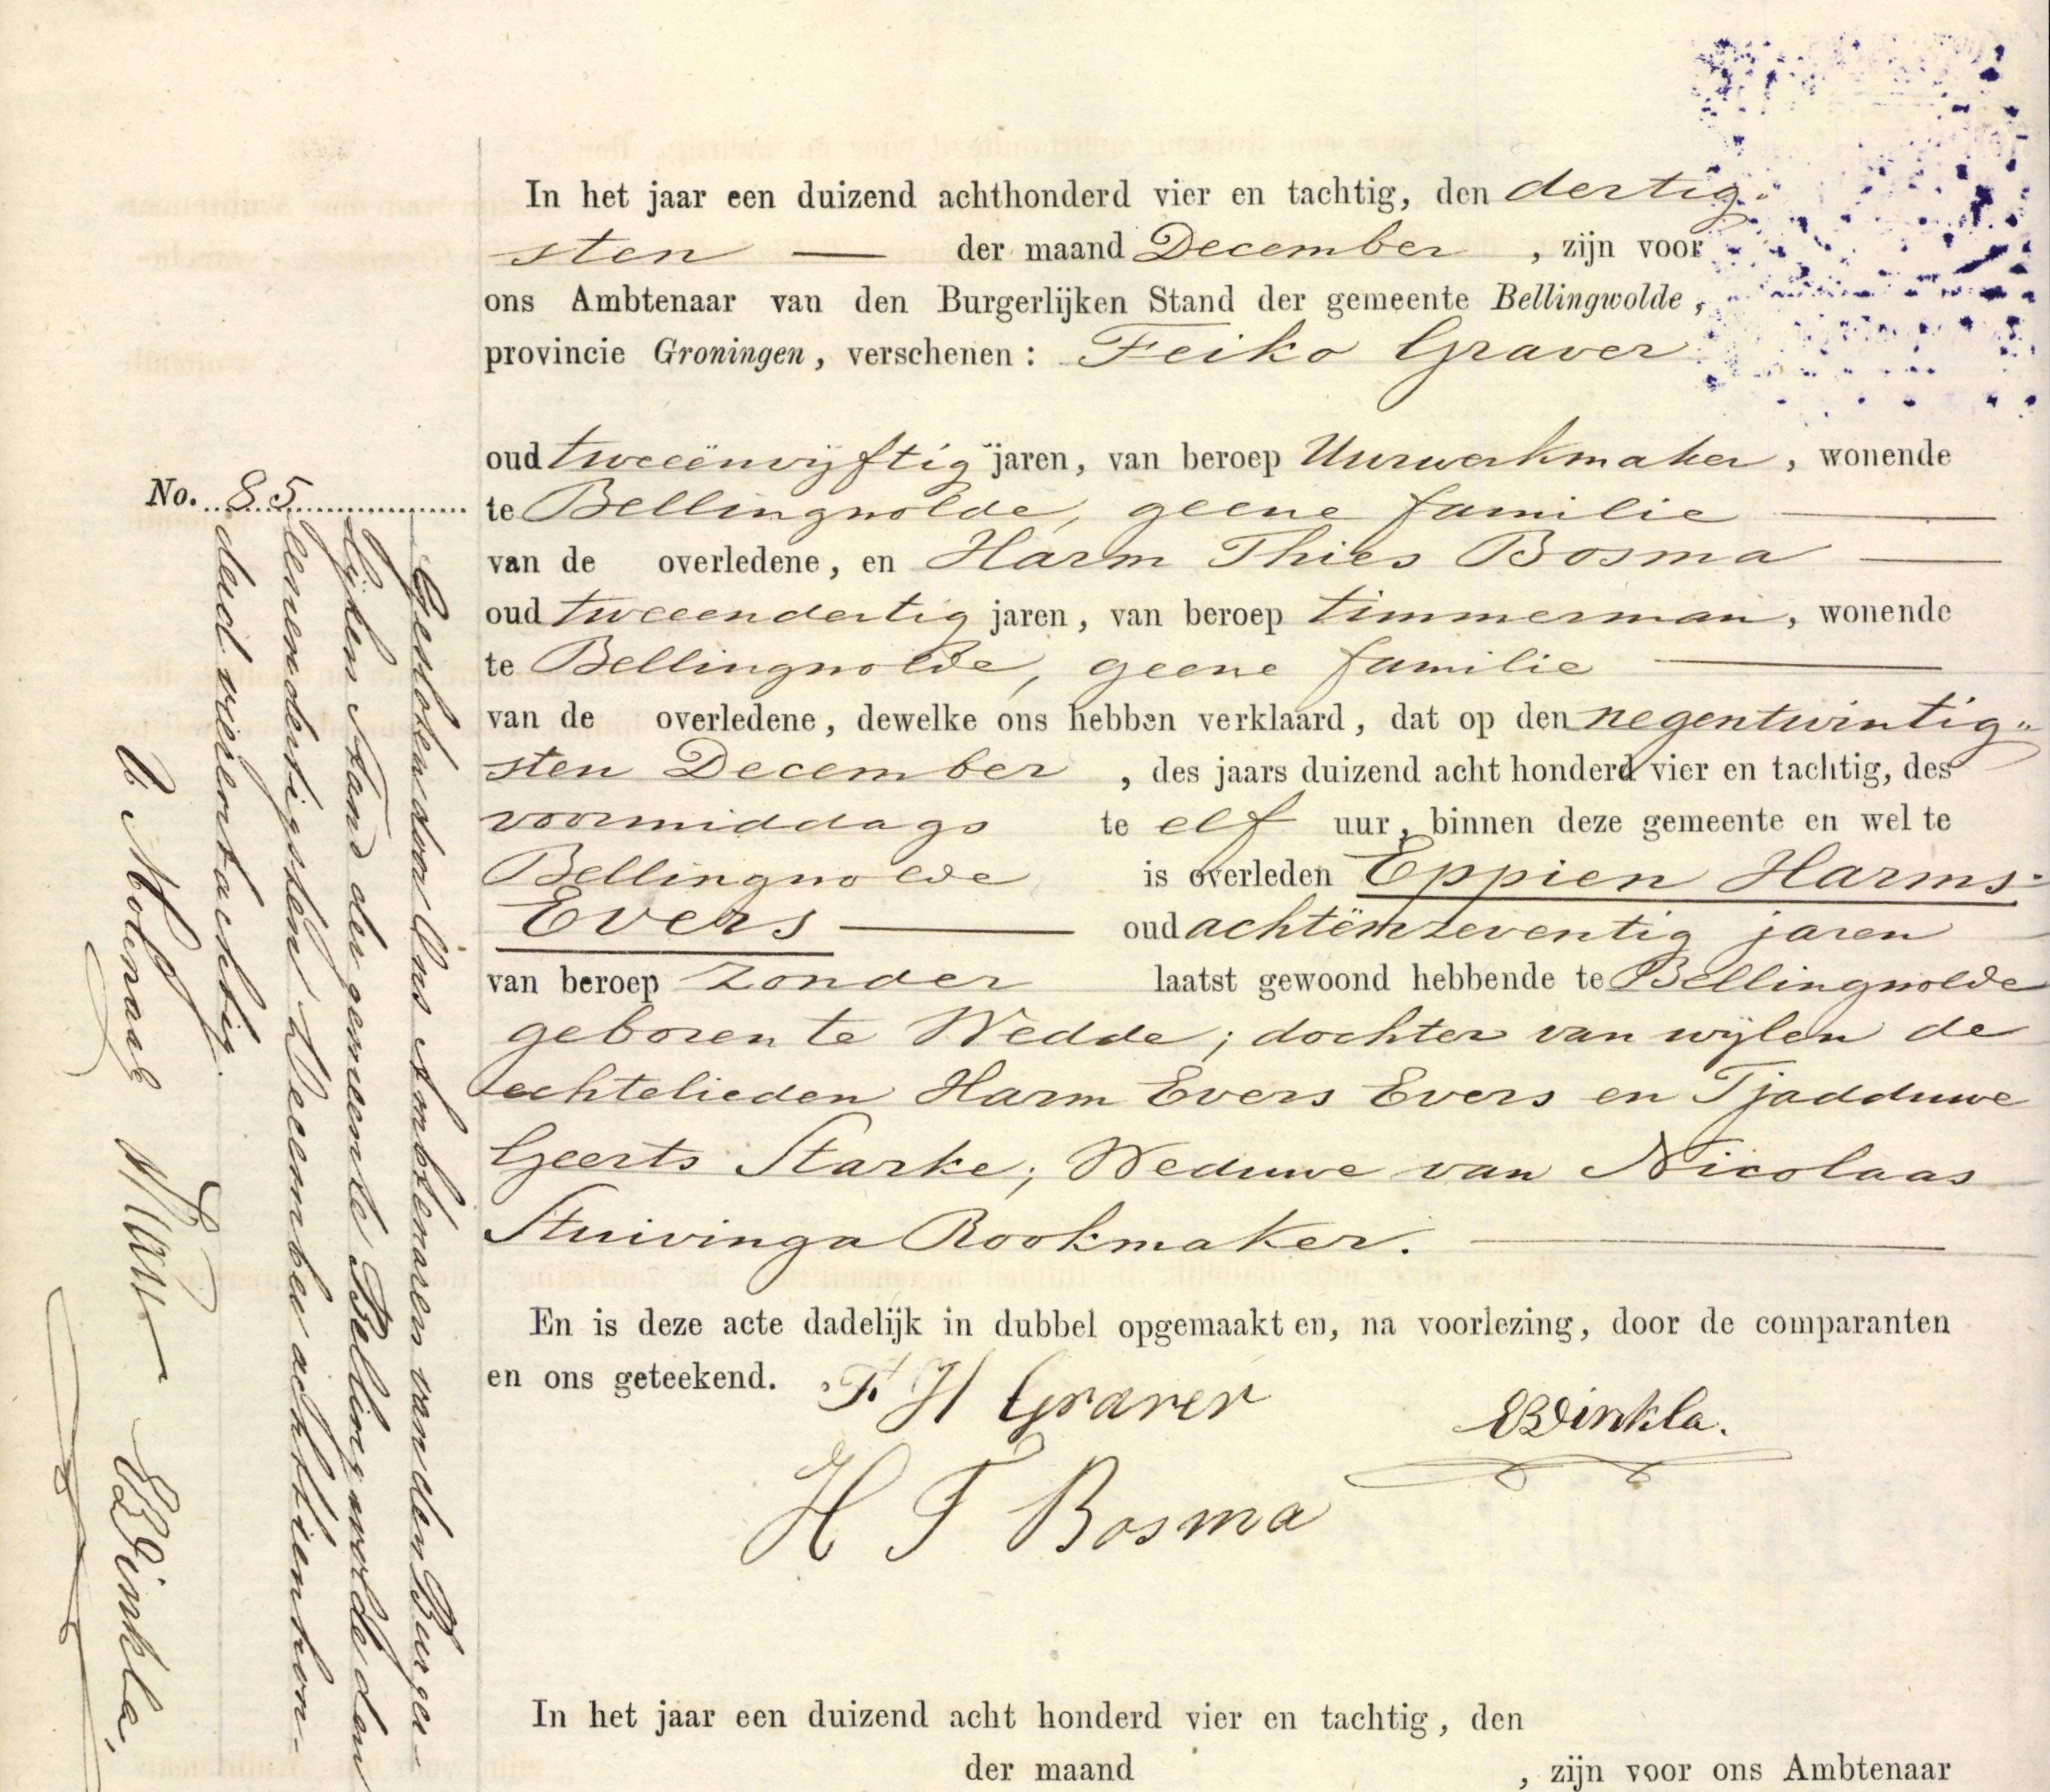 In het jaar een duizend achthonderd vier en tachtig, den dertig-
sten — der maand December , zijn voor
ons Ambtenaar van den Burgerlijken Stand der gemeente Bellingwolde,
provincie Groningen, verschenen: Feiko Graver
oud tweeënvijftig jaren, van beroep Uurwerkmaker, wonende
te Bellingwolde, geene familie —
van de overledene, en Harm Thies Bosma —
oud tweeendertig jaren, van beroep timmerman, wonende
te Bellingwolde, geene familie —
van de overledene, dewelke ons hebben verklaard, dat op den negentwintig-
sten December , des jaars duizend acht honderd vier en tachtig, des
voormiddags te elf uur, binnen deze gemeente en wel te
Bellingwolde is overleden Eppien Harms-
Evers — oud achtënzeventig jaren
van beroep zonder laatst gewoond hebbende te Bellingwolde
geboren te Wedde; dochter van wijlen de
echtelieden Harm Evers Evers en Tjadduwe
Geerts Starke; Weduwe van Nicolaas
Stuivinga Rookmaker. —
En is deze acte dadelijk in dubbel opgemaakt en, na voorlezing, door de comparanten
en ons geteekend. F H Graver
EBDinkla.
H T Bosma
No. 85
Gesloten door Ons Ambtenaren van den Burger-
lijken Stand der gemeente Bellingwolde den
eenendertigsten December achttienhon-
derd vierentachtig.
EBDinkla.
In het jaar een duizend acht honderd vier en tachtig, den
der maand , zijn voor ons Ambtenaar